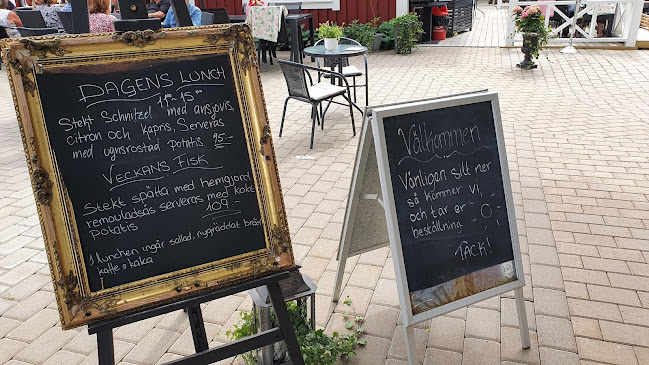 DAGENS LUNCH
11⁰⁰-15⁰⁰
Stekt Schnitzel med ansjovis,
citron och kapris, Serveras
med ugnsrostad potatis. 95:-
VECKANS FISK
Stekt spätta med hemgjord
remouladsås serveras med kokt
potatis 109:-
I lunchen ingår sallad, nygräddat bröd
kaffe o kaka
Välkommen
Vänligen sitt ner
så kommer vi
och tar er
beställning
TACK!